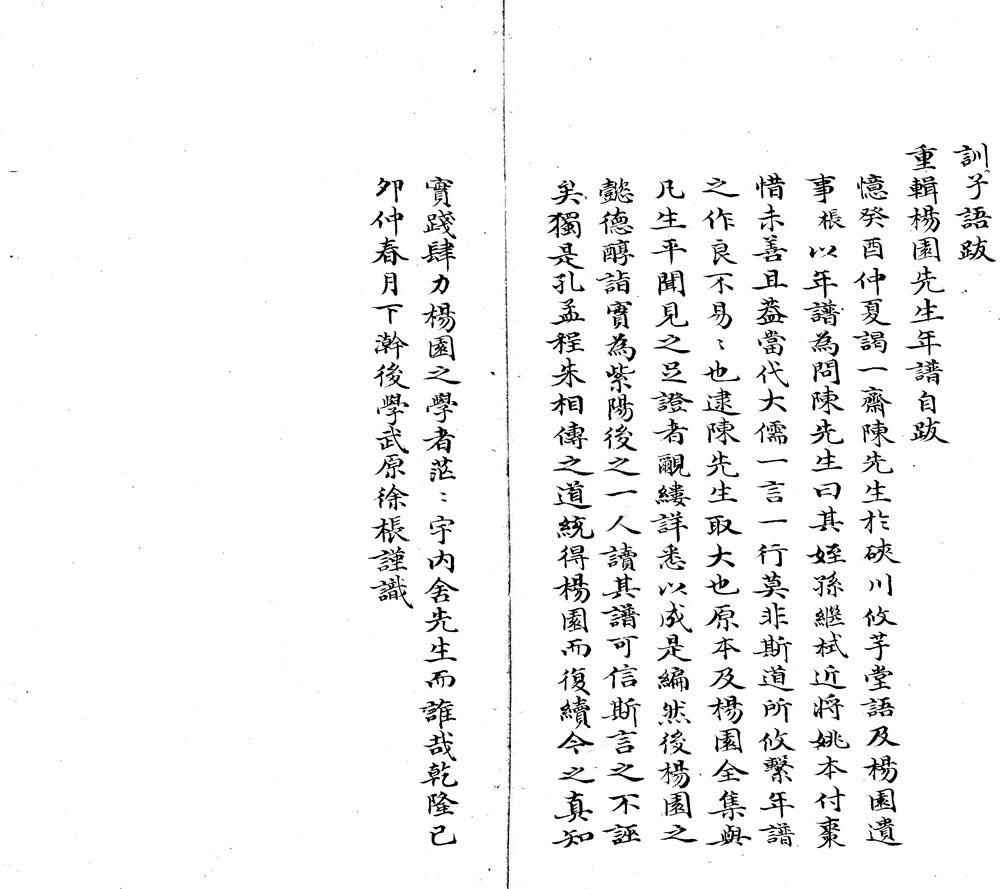 訓子語跋
重輯楊園先生年譜自跋
憶癸酉仲夏謁一齋陳先生於硤川攸芋堂語及楊園遺
事棖以年譜為問陳先生曰其姪孫繼栻近將姚本付棗
惜未善且葢當代大儒一言一行莫非斯道所攸繫年譜
之作良不易〻也逮陳先生取大也原本及楊園全集與
凡生平聞見之足證者覼縷詳悉以成是編然後楊園之
懿德醇詣實為紫陽後之一人讀其譜可信斯言之不誣
矣獨是孔孟程朱相傳之道統得楊園而復續今之真知
實踐肆力楊園之學者茫〻宇內舍先生而誰哉乾隆已
夘仲春月下澣後學武原徐棖謹識